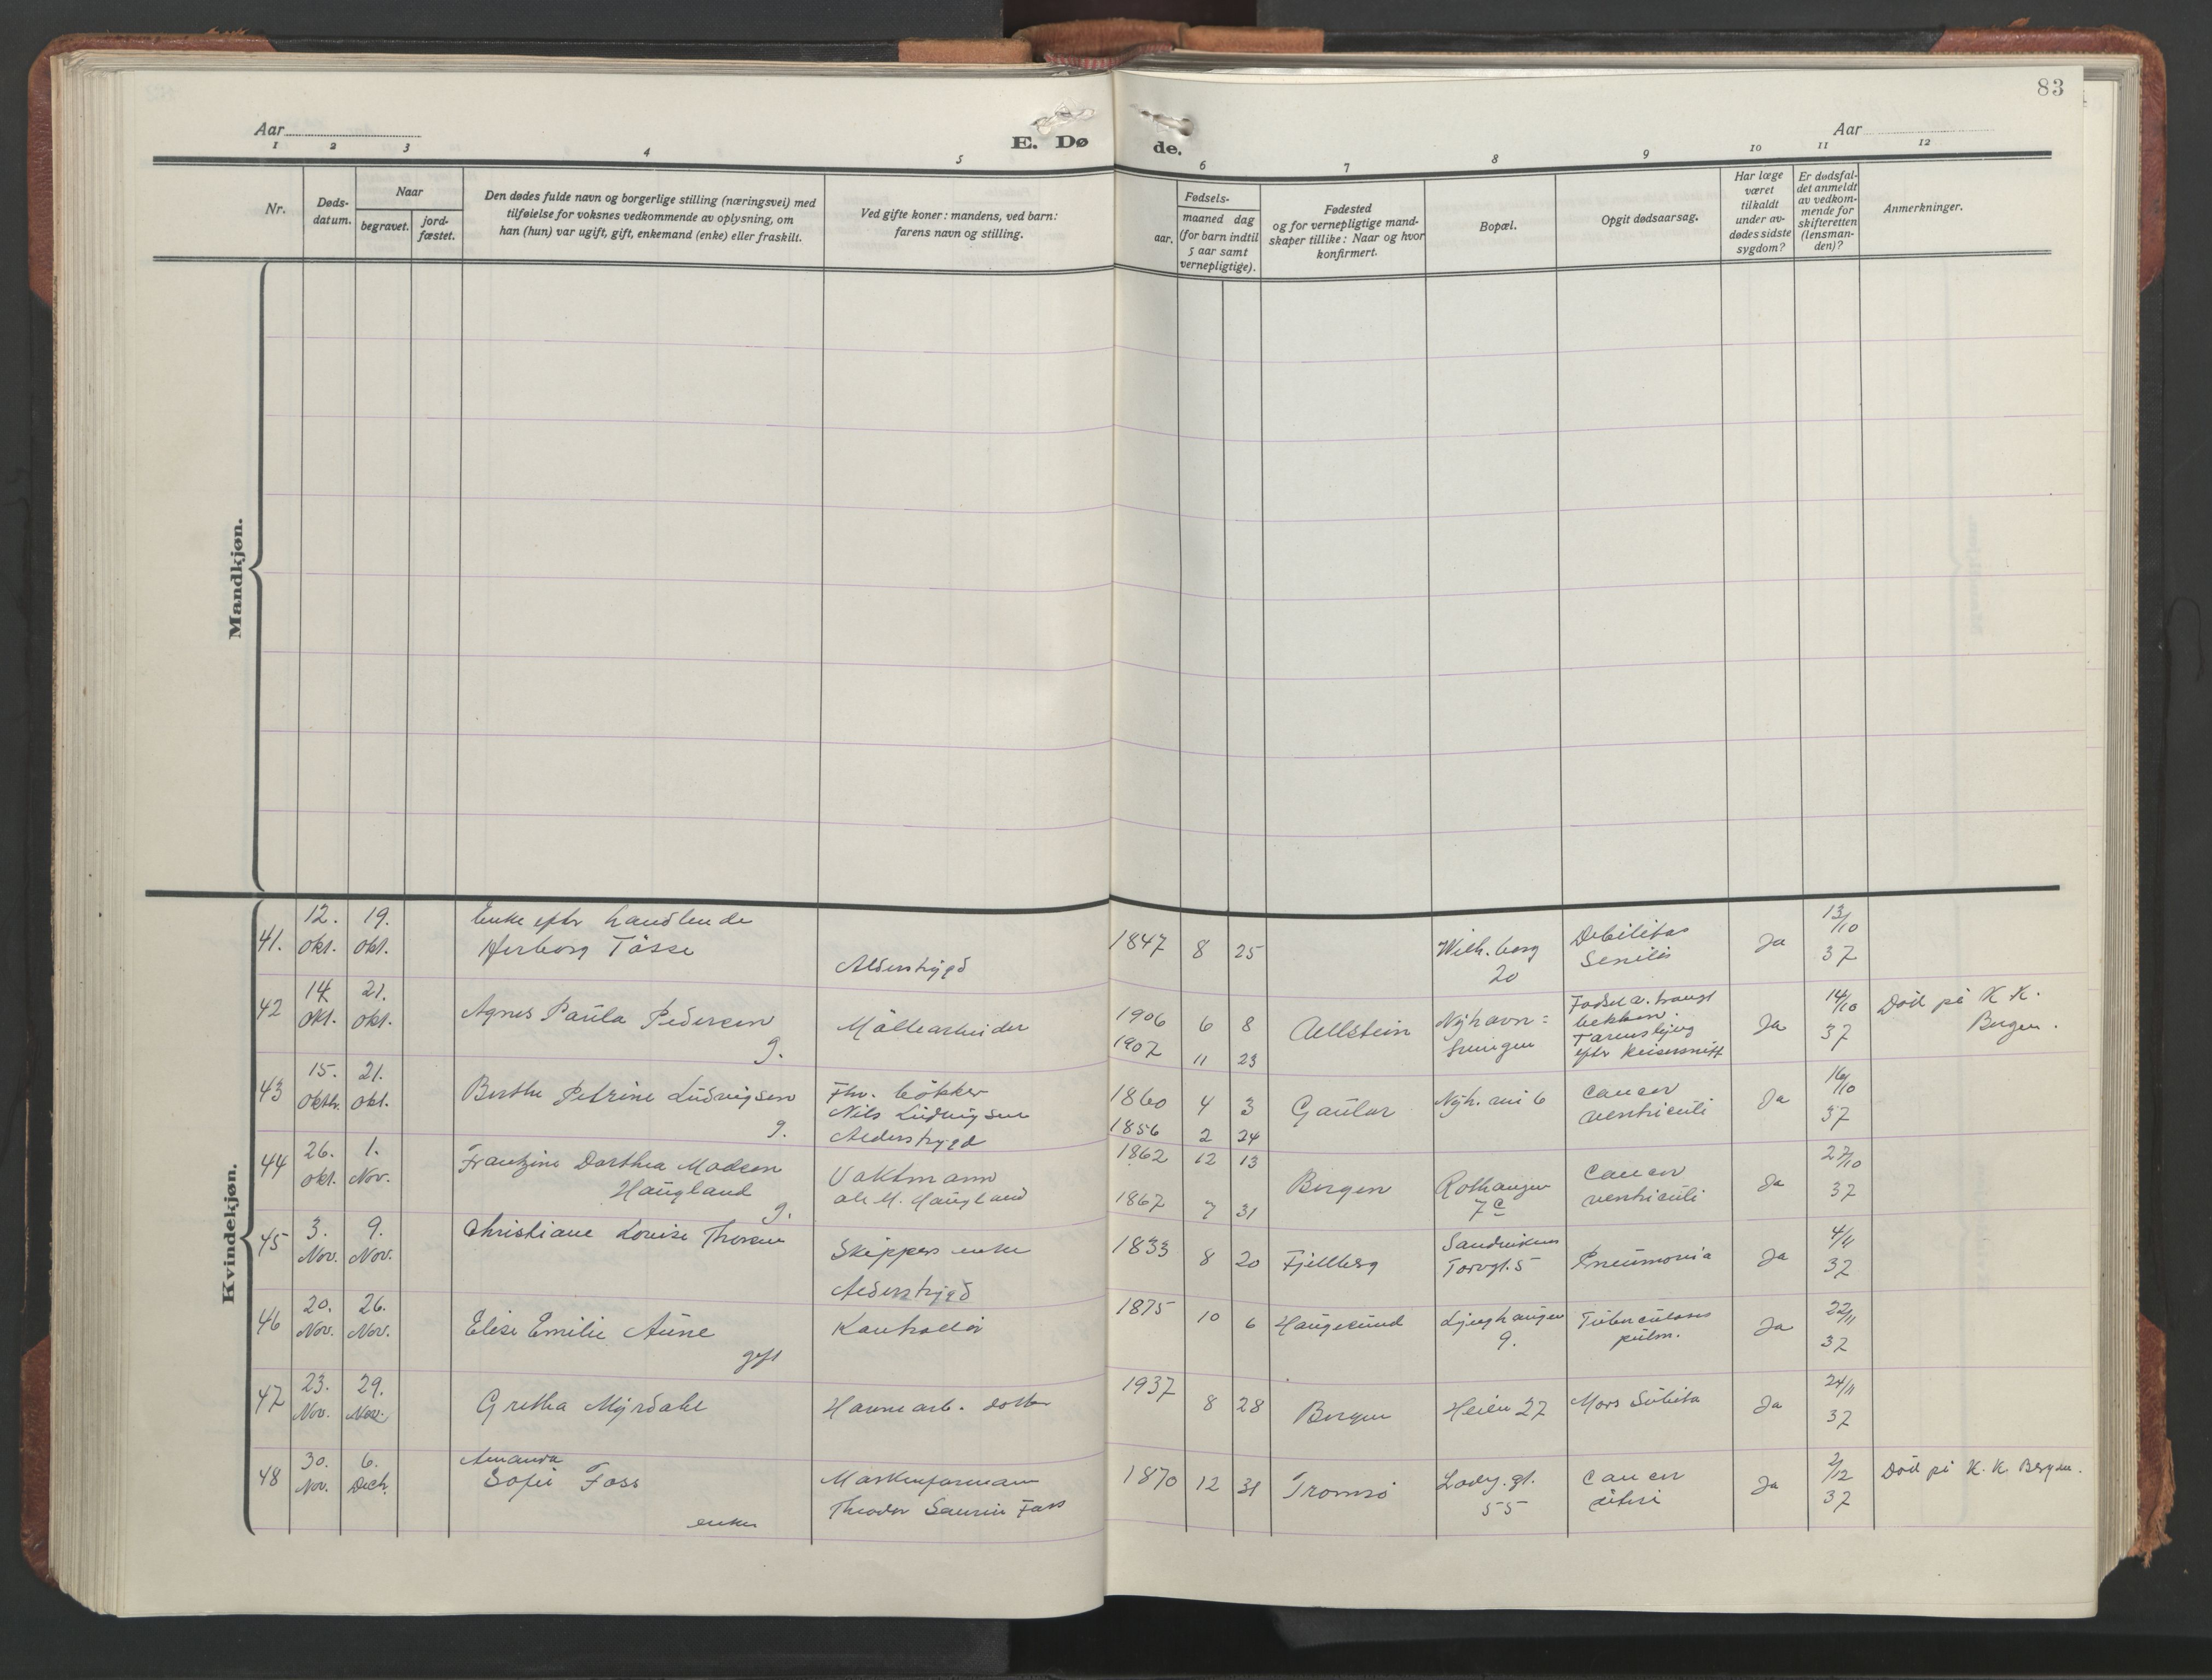 83
Aar
E. Dø
de.
Aar
1 2 3 4 5 6 7 8 9 10 11 12
Nr.
Døds-
datum.
Naar
begravet.
jord-
fæstet.
Den dødes fulde navn og borgerlige stilling (næringsvei) med
tilføielse for voksnes vedkommende av oplysning, om
han (hun) var ugift, gift, enkemand (enke) eller fraskilt.
Ved gifte koner: mandens, ved barn:
farens navn og stilling.
Fødsels-
aar.
maaned dag
(for barn indtil
5 aar samt
vernepligtige).
Fødested
og for vernepligtige mand-
skaper tillike: Naar og hvor
konfirmert.
Bopæl.
Opgit dødsaarsag.
Har læge
været
tilkaldt
under av-
dødes sidste
sygdom?
Er dødsfal-
det anmeldt
av vedkom-
mende for
skifteretten
(lensman-
den)?
Anmerkninger.
Mandkjøn.
Kvindekjøn.
41. 12. Okt. 19. Okt.
Enke eftr handlende
Herborg Tösse
Alderstrygd
1847 8 25
Wilh. berg
20
Debilitas
Senilis
Ja
13/10
37
42 14 Okt. 21. Okt.
Agnes Paula Pedersen
g.
Möllearbeider
1906 6 8
1907 11 23
Nyhavn=
svingen
bekken.
eftr Keisersnitt
Ja
14/10
37
Död på K. K.
Bergen.
43 15. Oktb. 21. Okt.
Berthe Petrine Ludvigsen
g.
Fhv. bökker
Nils Ludvigsen
Alderstrygd
1860 4 3
1856 2 24
Gaular
Nyh. vei 6
Cancer
ventriculi
Ja
16/10
37
44 26. Okt. 1. Nov.
Frantzine Dorthea Madsen
Haugland
g.
Vaktmann
Ole M. Haugland
1862 12 13
1867 7 31
Bergen
Rothaugen
7 c
Cancer
ventriculi
Ja
27/10
37
45 3. Nov. 9. Nov.
Christiane Lovise Thorsen
Skippers enke
Alderstrygd
1833 8 20
Fjellberg
Sandvikens
Torvgt. 5
Pneumonia
Ja
4/11
37
46 20. Nov. 26. Nov.
Elise Emilie Aune
gift
Kontrollör
1875 10 6
Haugesund
Ljunghaugen
9.
Tuberculosis
pulm.
Ja
22/11
37
47 23. Nov. 29. Nov.
Gretha Myrdahl
Havnearb. dotter
1937 8 28
Bergen
Heien 27
Mors Subita
Ja
24/11
37
48 30. Nov. 6. Decb.
Amanda
Sofie Foss
enke
Theodor Severin Foss
1870 12 31
Tromsö
Ladeg. gt.
55
Cancer
uteri
Ja
2/12
37
Död på K. K. Bergen.